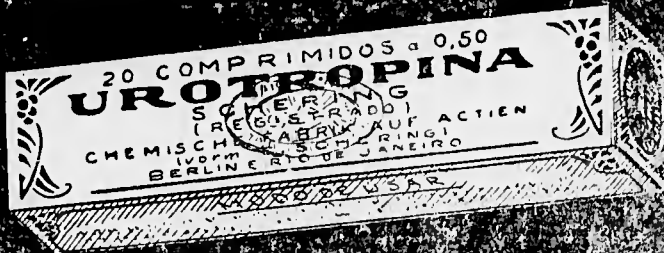 20 COMPRIMIDOS a 0,50
UROTROPINA
SCHERING
(REGISTRADO)
CHEMISCHE FABRIK AUF ACTIEN
(vorm E. SCHERING)
BERLIN E RIO DE JANEIRO
MODO DE USAR